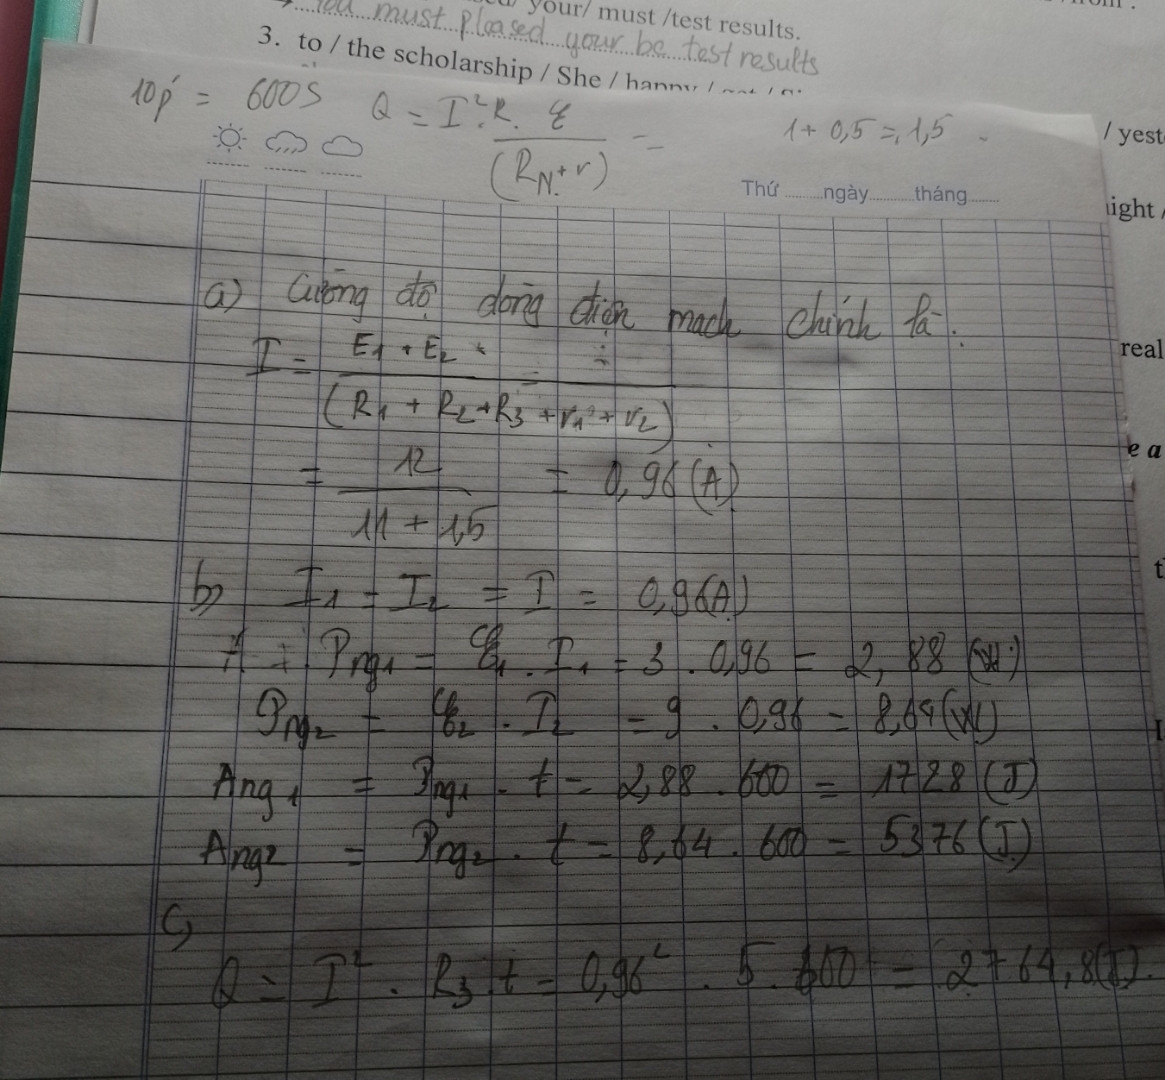 your/ must /test results.
You must pleased your be test results
3. to / the scholarship / She / happy /
/ yest
10p' = 600S Q = I².R. ξ / (R_N + r) = 1 + 0,5 = 1,5
Thứ ngày tháng
ight /
a) Cường độ dòng điện mạch chính là:
real
I = E₁ + E₂ / (R₁ + R₂ + R₃ + r₁ + r₂) =
e a
= 12 / 11 + 1,5 = 0,96 (A)
b) I₁ = I₂ = I = 0,96(A)
Png₁ = ξ₁ . I₁ = 3 . 0,96 = 2,88 (W)
Png₂ = ξ₂ . I₂ = 9 . 0,96 = 8,64 (W)
Ang₁ = Png₁ . t = 2,88 . 600 = 1728 (J)
Ang₂ = Png₂ . t = 8,64 . 600 = 5376 (J)
c,
Q = I² . R₃ t = 0,96² . 5 . 600 = 2764,8(J).